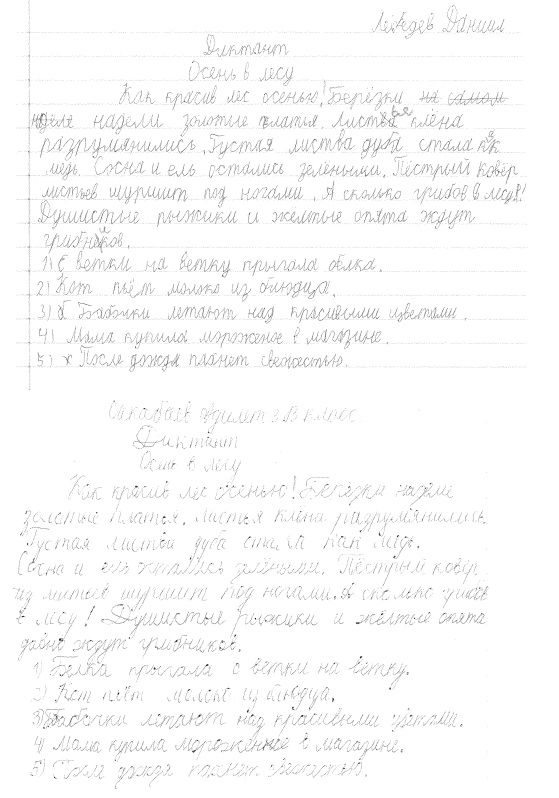 Лебедев Даниил
Диктант
Осень в лесу
Как красив лес осенью! Берёзки на самом
надели золотые платья. Листья клёна
разрумянились. Густая листва дуба стала как
медь. Сосна и ель остались зелёными. Пёстрый ковёр
листьев шуршит под ногами. А сколько грибов в лесу!
Душистые рыжики и желтые опята ждут
грибников.
1) С ветки на ветку прыгала белка.
2) Кот пьёт молоко из блюдца.
3) Бабочки летают над красивыми цветами.
4) Мама купила мороженое в магазине.
5) После дождя пахнет свежестью.
3 В класс
Диктант
Осень в лесу
Как красив лес осенью! Берёзки надели
золотые платья. Листья клёна разрумянились.
Густая листва дуба стала как медь.
Сосна и ель остались зелёными. Пёстрый ковёр
из листьев шуршит под ногами. А сколько грибов
в лесу! Душистые рыжики и жёлтые опята
давно ждут грибников.
1) Белка прыгала с ветки на ветку.
2) Кот пьёт молоко из блюдца.
3) Бабочки летают над красивыми цветами.
4) Мама купила мороженное в магазине.
5) После дождя пахнет свежестью.